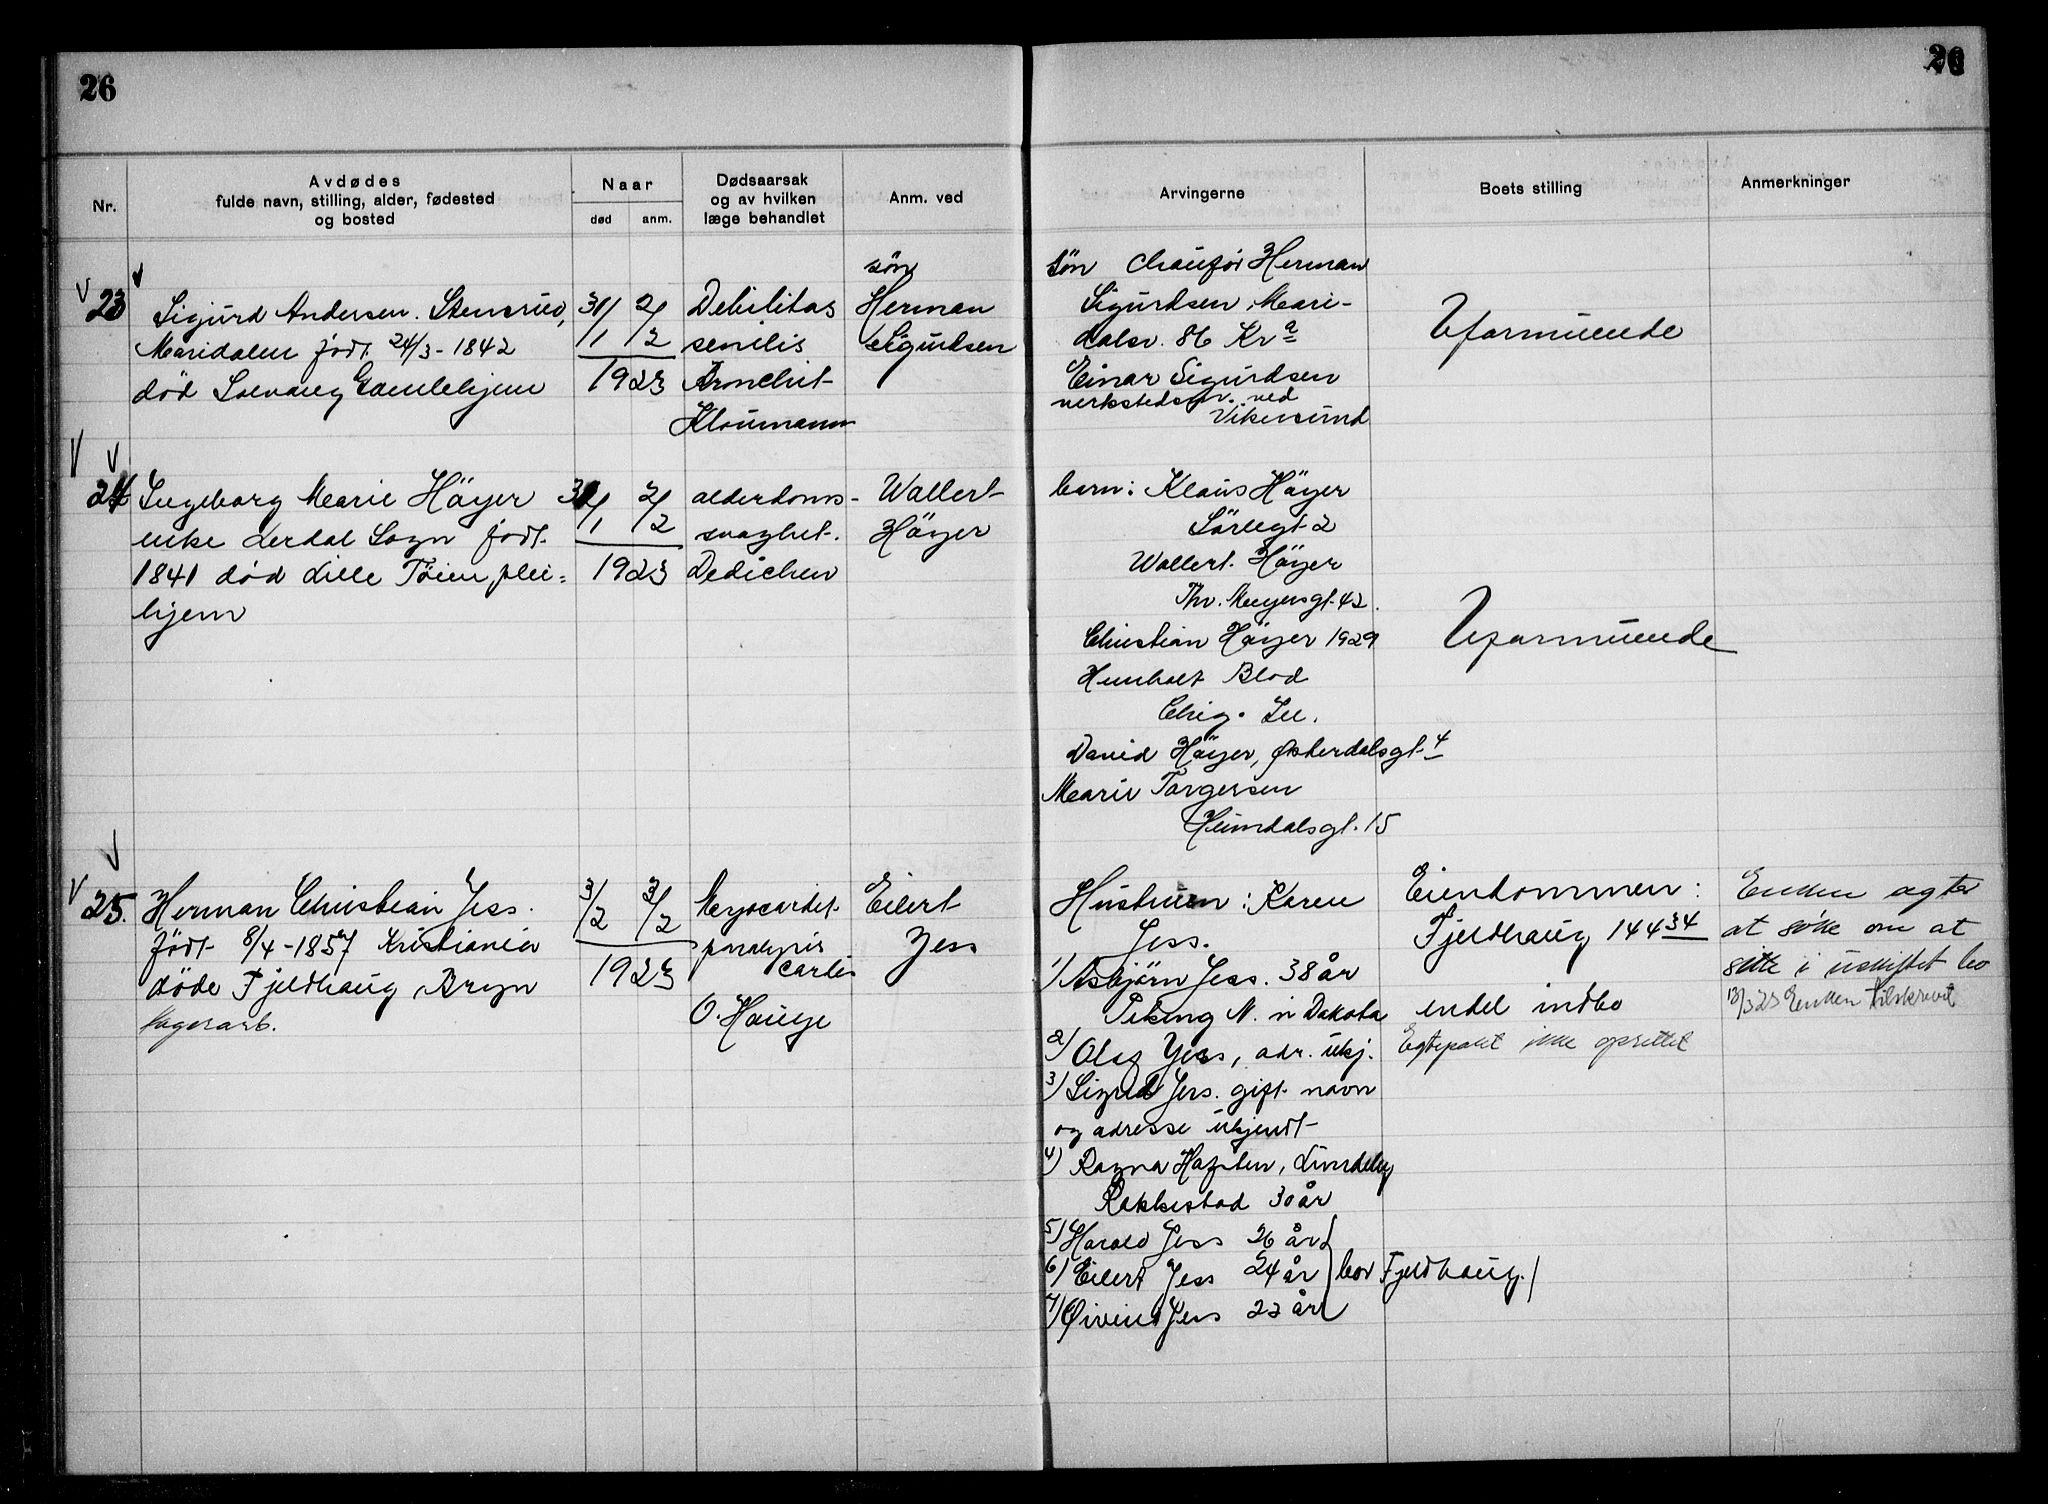 26
26
Nr.
Avdødes
fulde navn, stilling, alder, fødested
og bosted
Naar
død
anm.
Dødsaarsak
og av hvilken
læge behandlet
Anm. ved
Arvingerne
Boets stilling
Anmerkninger
23
Sigurd Andersen. Stensrud,
Maridalen født 24/3-1842
død Solvang Gamlehjem
31/1 2/2
1923
Debilitas
senilis
Kloumann
søn
Herman
Sigurdsen
søn Chaufør Herman
Sigurdsen Mari-
dalsv. 86 Kra
Einar Sigurdsen
verkstedsarb. ved
Vikersund
Uformuende
24
Ingeborg Marie Höyer
enke Lerdal Sogn født
1841 død Lille Töien plei=
hjem
31/1 2/2
1923
alderdoms-
svaghet.
Dedichen
Wallert
Höyer
barn: Klaus Höyer
Sörligt 2
Wallert Höyer
Th. Meyersgt. 42.
Christian Höyer 1929
Humbolt Blod
Chig. Ill.
David Höyer, Østerdalsgt. 4
Marie Torgersen
Heimdalsgt. 15
Uformuende
25.
Herman Christian Jess.
født 8/4-1857 Kristiania
døde Fjeldhaug, Bryn
lagerarb.
3/2 3/2
1923
Myocardit
paralysis
cordis
O. Hauge
Eilert
Jess
Hustruen: Karen
Jess.
1) Asbjørn Jess. 38 år
Peking N. i Dakota
2) Olaf Jess, adr. ukj.
3) Sigrid Jess. gift navn
og adresse ukjendt
4) Ragna Hafsten, Lundeby
Rakkestad 30 år
5) Harald Jess 26 år
6) Eilert Jess 24 år } bor Fjeldhaug.
7) Øivind Jess 22 år
Eiendommen:
Fjeldhaug 144 34
endel indbo
Egtepakt ikke oprettet
Enken agter
at søke om at
sitte i uskiftet bo
13/3 23 Enken tilskrevet